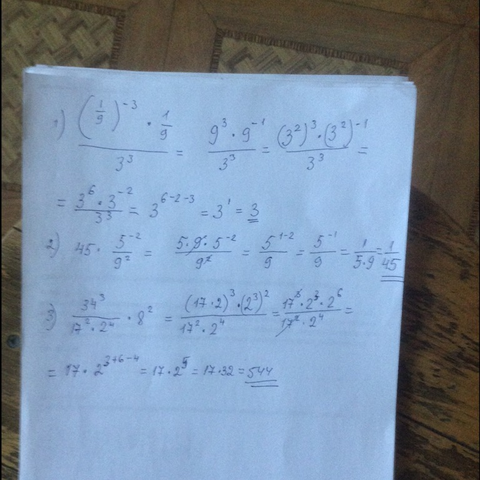 1) ((1/9)^-3 · 1/9)/3^3 = (9^3 · 9^-1)/3^3 = ((3^2)^3 · (3^2)^-1)/3^3 =
= (3^6 · 3^-2)/3^3 = 3^(6-2-3) = 3^1 = 3
2) 45 · 5^-2/9^2 = (5·9·5^-2)/9^2 = 5^(1-2)/9 = 5^-1/9 = 1/(5·9) = 1/45
3) 34^3/(17^2 · 2^4) · 8^2 = ((17·2)^3 · (2^3)^2)/(17^2 · 2^4) = (17^3 · 2^3 · 2^6)/(17^2 · 2^4) =
= 17 · 2^(3+6-4) = 17 · 2^5 = 17·32 = 544